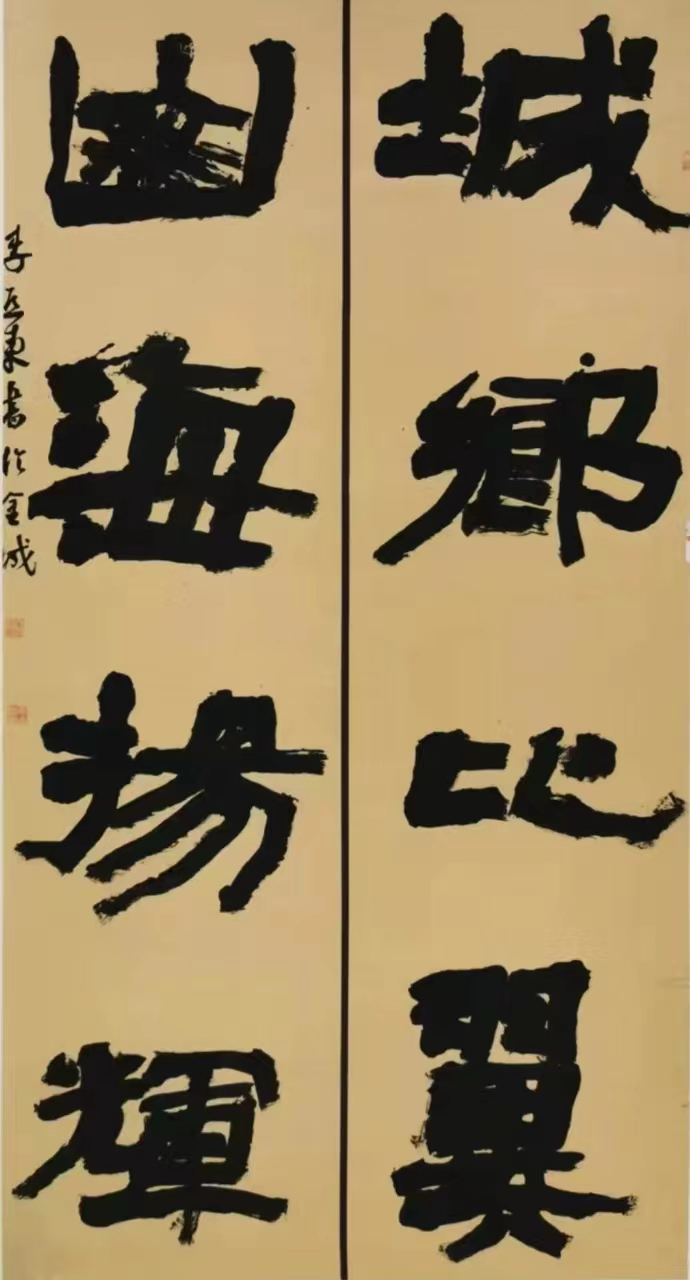 城鄉比翼
海揚輝
李東書於金城